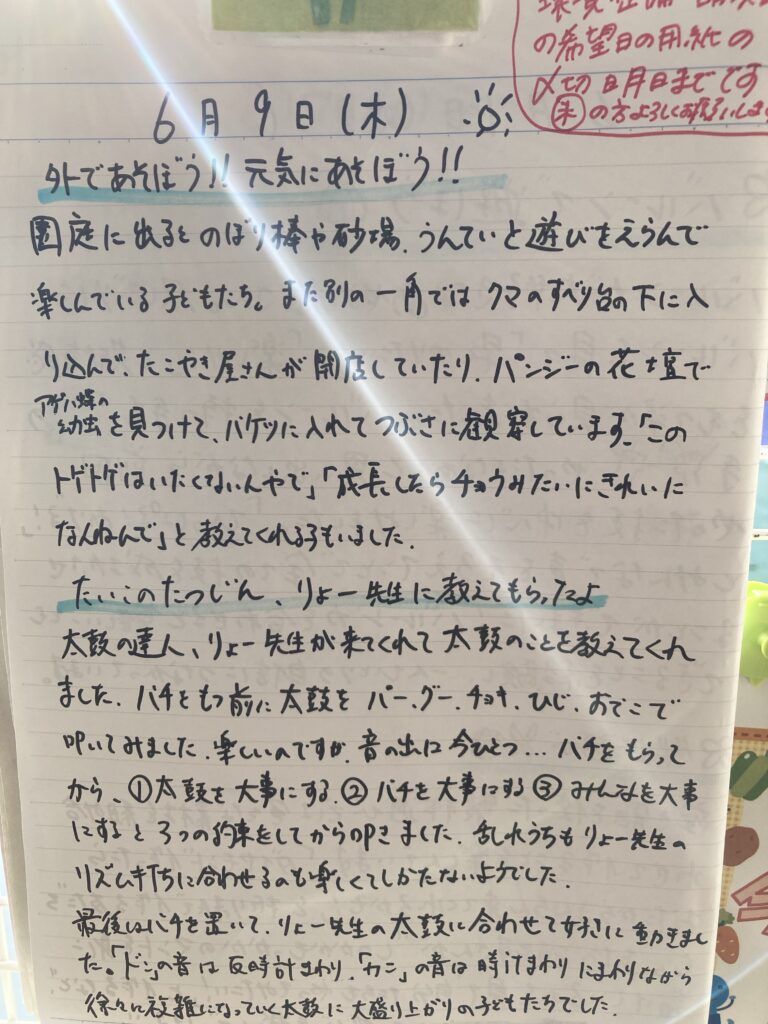 の希望日の用紙の
〆切 日月日までです
6月9日(木)
外であそぼう!! 元気にあそぼう!!
園庭に出るとのぼり棒や砂場、うんていと遊びをえらんで
楽しんでいる子どもたち。また別の一角ではクマのすべり台の下に入
り込んで、たこやき屋さんが開店していたり、パンジーの花壇で
アゲハ蝶の
幼虫を見つけて、バケツに入れてつぶさに観察しています。「この
トゲトゲはいたくないんやで」「成長したらチョウみたいにきれいに
なんねんで」と教えてくれる子もいました。
たいこのたつじん、りょー先生に教えてもらったよ
太鼓の達人、りょー先生が来てくれて太鼓のことを教えてくれ
ました。バチをもつ前に太鼓をパー、グー、チョキ、ひじ、おでこで
叩いてみました。楽しいのですが、音の出は今ひとつ… バチをもらって
から、①太鼓を大事にする。②バチを大事にする③みんなを大事
にすると3つの約束をしてから叩きました。乱れうちもりょー先生の
リズム打ちに合わせるのも楽しくてしかたないようでした。
最後はバチを置いて、りょー先生の太鼓に合わせて好きに動きまし
た。「ドン」の音は反時計まわり、「カン」の音は時計まわりにまわりながら
徐々に複雑になっていく太鼓に大盛り上がりの子どもたちでした。